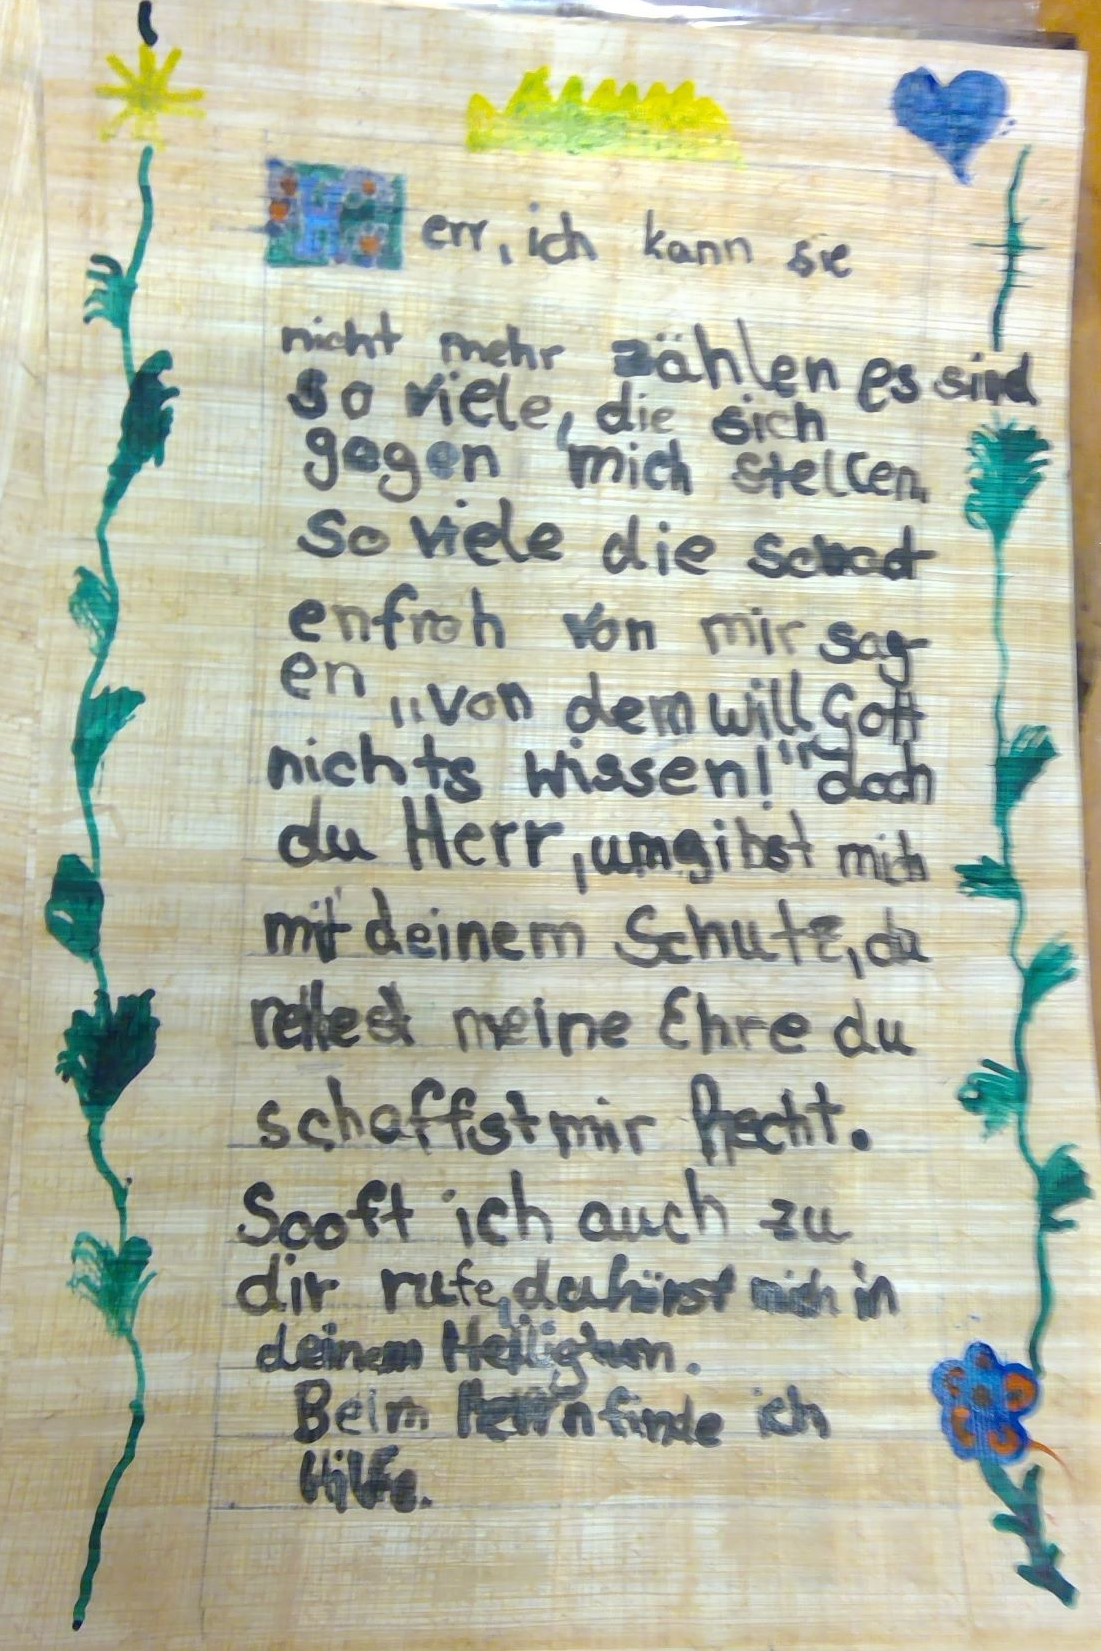 Herr, ich kann sie
nicht mehr zählen es sind
so viele, die sich
gegen mich stellen,
so viele die schad
enfroh von mir sag
en „von dem will Gott
nichts wissen!" doch
du Herr, umgibst mich
mit deinem Schutz, du
rettest meine Ehre du
schaffst mir Recht.
Sooft ich auch zu
dir rufe, du hörst mich in
deinem Heiligtum.
Beim Herrn finde ich
Hilfe.